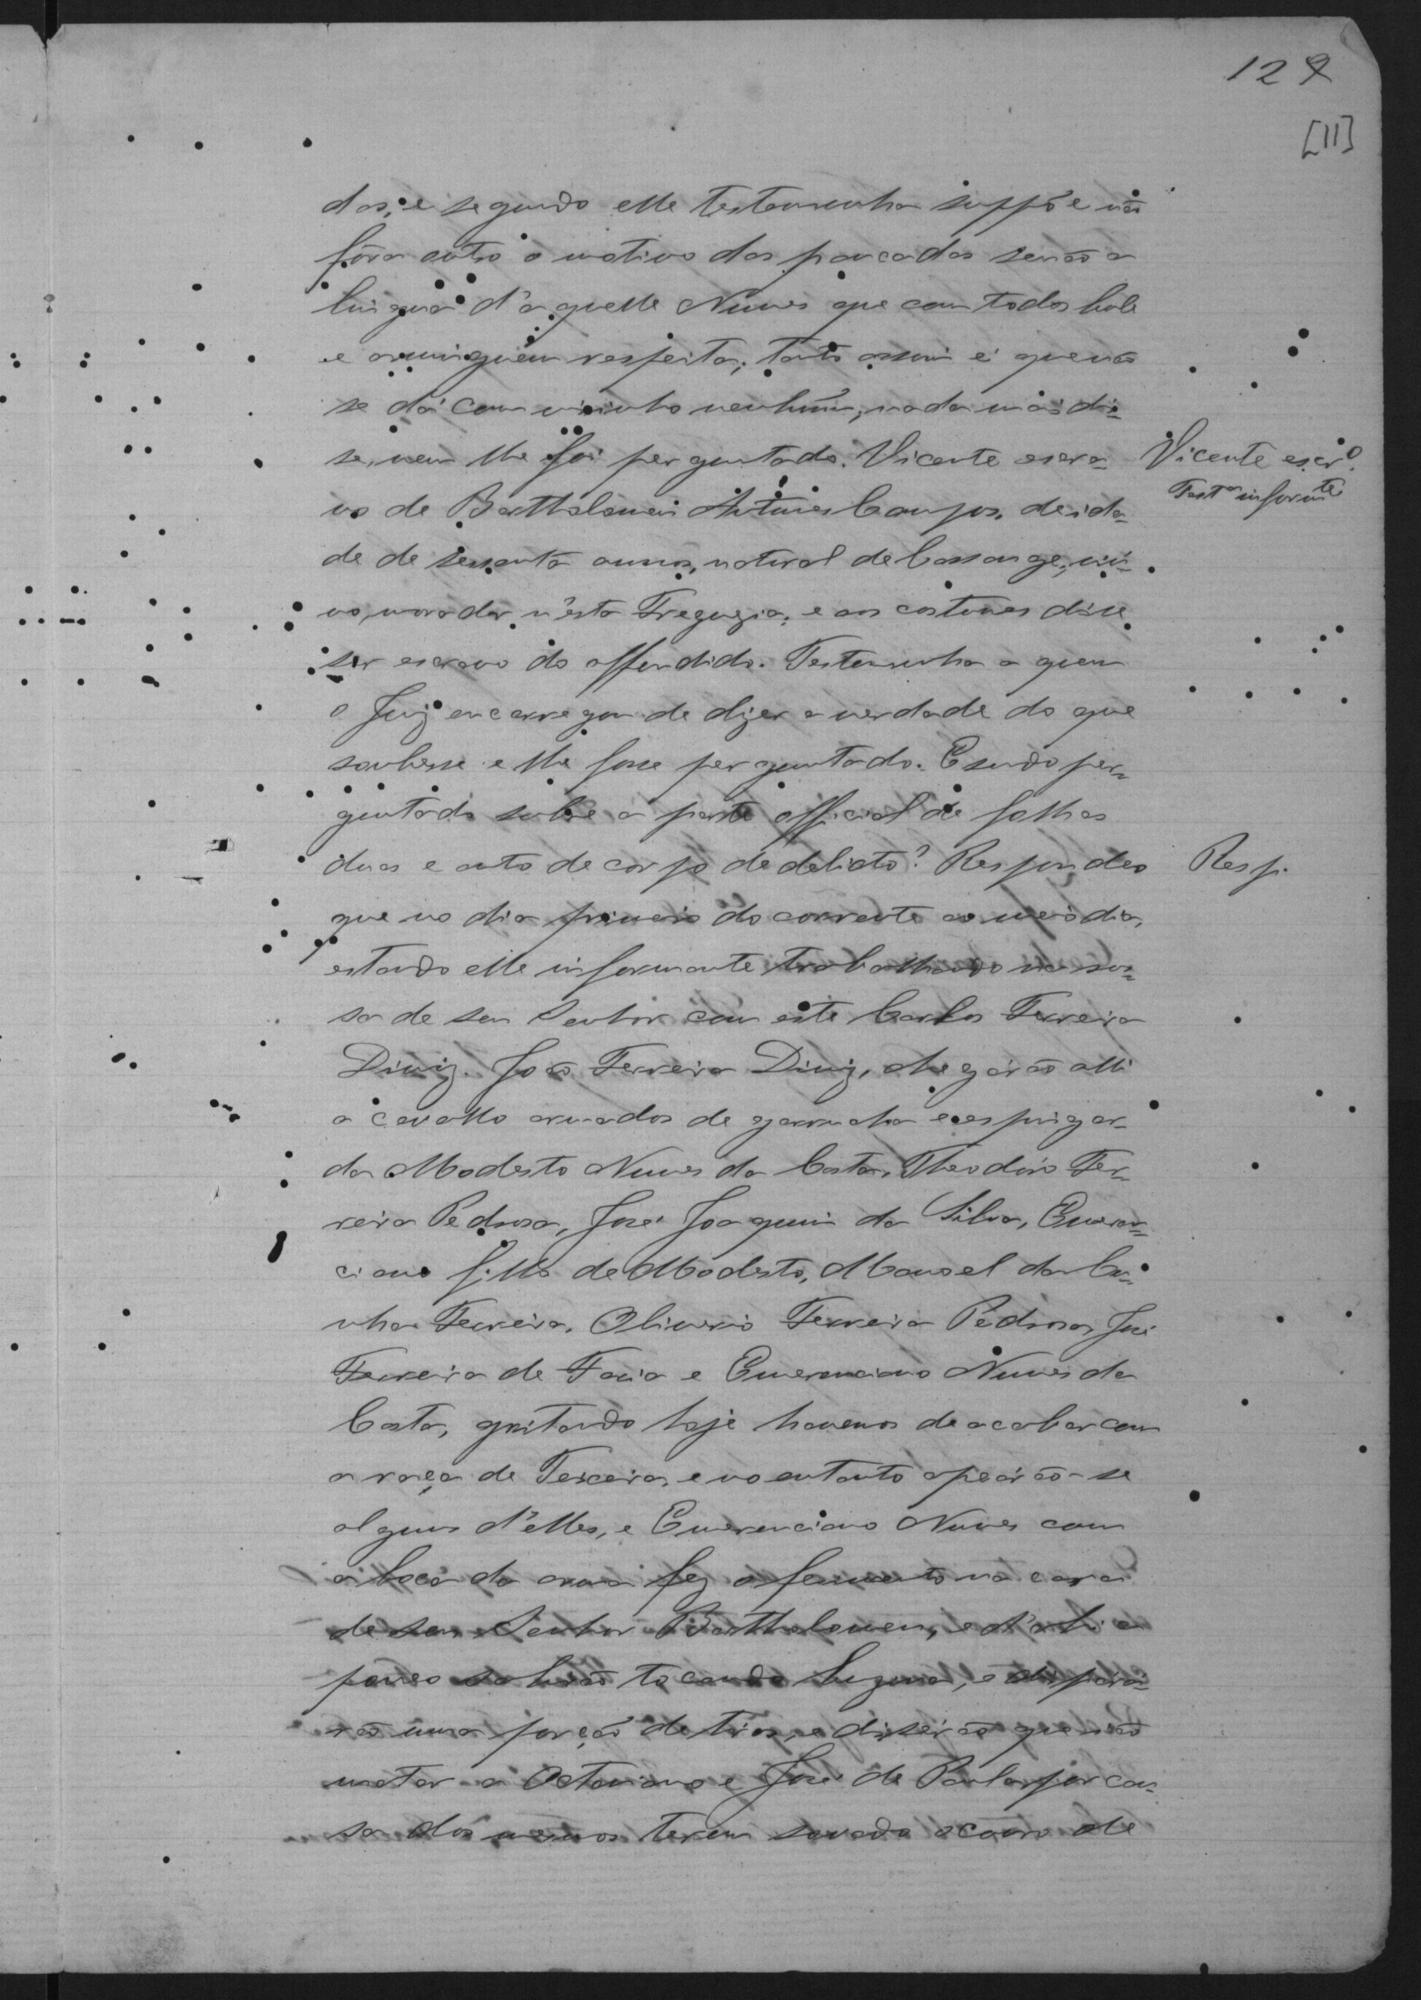 122
[11]
das, e segundo elle testemunha suppõe não
fôra outro o motivo das pancadas senão a
lingua d'aquelle Nunes que com todos bole
e a ninguem respeita; tanto assim é que não
se dá com visinho nenhum, nada mais di-
se, nem lhe foi perguntado. Vicente escra-
vo de Barttholomeu Antunes Campos, de ida-
de de sessenta annos, natural de Cassange, viu-
vo, morador n'esta Freguezia, e aos costumes disse
ser escravo do offendido. Testemunha a quem
o Juiz encarregou de dizer a verdade do que
soubesse e lhe fosse perguntado. E sendo per-
guntado sobre a parte official de folhas
duas e auto de corpo de delicto? Respondeo
que no dia primeiro do corrente ao meio dia,
estando elle informante trabalhando na ro-
sa de seu Senhor com este Carlos Ferreira
Diniz. João Ferreira Diniz, chegárão alli
a cavallo armados de garrucha e espingar-
da Modesto Nunes da Costa, Theodoro Fer-
reira Pedrosa, José Joaquim da Silva, Emeren-
ciano filho de Modesto, Manoel da Cu-
nha Ferreira, Oliverio Ferreira Pedrosa, José
Ferreira de Faria e Emerenciano Nunes da
Costa, gritando hoje havemos de acabar com
a raça de Terceira, e no entanto apeárão-se
alguns d'elles, e Emerenciano Nunes com
a boca da arma fez o ferimento na cara
de seu Senhor Barttholomeu, e d'ahi a
pouco sahirão tocando buzina, e dispará-
rão uma porção de tiros, e disserão que ião
matar a Octaviano e José de Paula por cau-
sa dos mesmos terem sovado o couro de
Vicente escrº.
Testª informte
Resp.